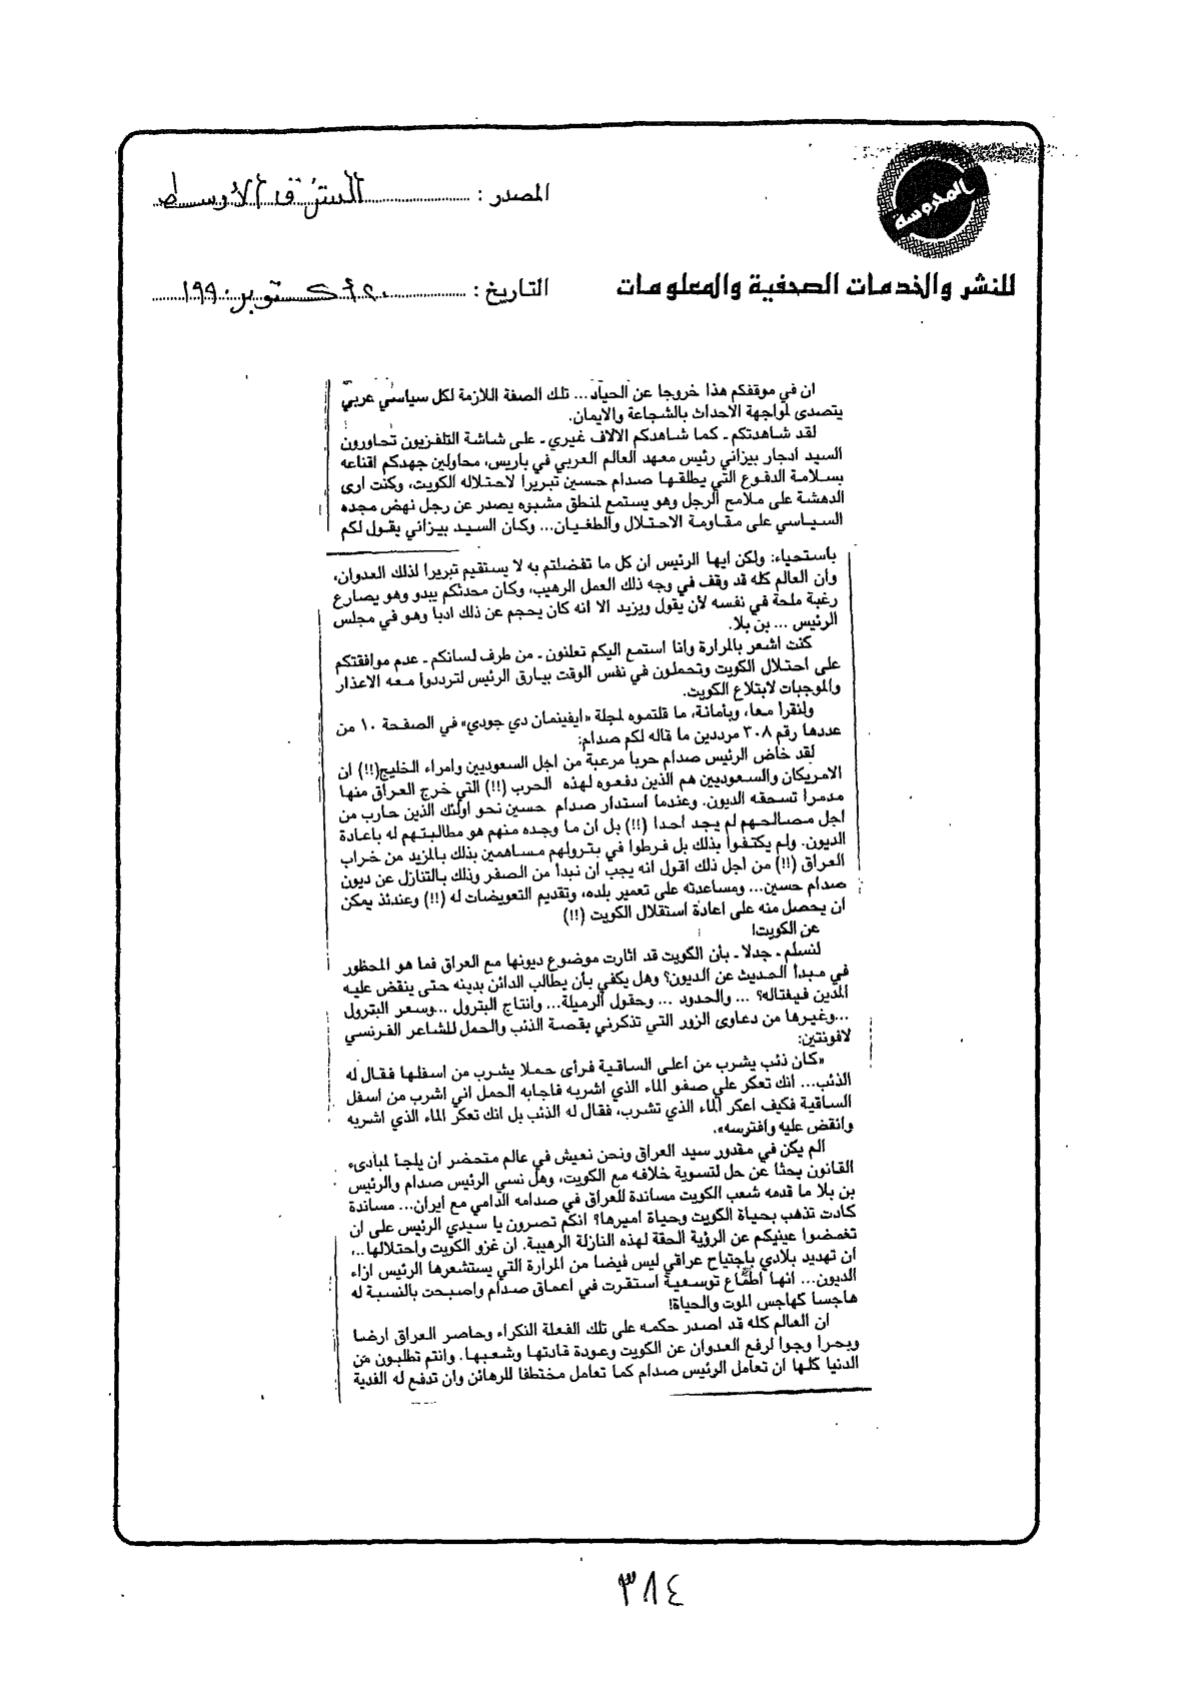 المحروسة
المصدر : الشرق الأوسط
للنشر والخدمات الصحفية والمعلومات
التاريخ : ٢٠ أكتوبر ١٩٩٠
ان في موقفكم هذا خروجا عن الحياد... تلك الصفة اللازمة لكل سياسي عربي
يتصدى لمواجهة الاحداث بالشجاعة والايمان.
لقد شاهدتكم ـ كما شاهدكم الالاف غيري ـ على شاشة التلفزيون تحاورون
السيد ادجار بيزاني رئيس معهد العالم العربي في باريس، محاولين جهدكم اقناعه
بسلامة الدفوع التي يطلقها صدام حسين تبريرا لاحتلاله الكويت، وكنت ارى
الدهشة على ملامح الرجل وهو يستمع لمنطق مشبوه يصدر عن رجل نهض مجده
السياسي على مقاومة الاحتلال والطغيان... وكان السيد بيزاني يقول لكم
باستحياء: ولكن ايها الرئيس ان كل ما تفضلتم به لا يستقيم تبريرا لذلك العدوان،
وأن العالم كله قد وقف في وجه ذلك العمل الرهيب، وكان محدثكم يبدو وهو يصارع
رغبة ملحة في نفسه لأن يقول ويزيد الا انه كان يحجم عن ذلك ادبا وهو في مجلس
الرئيس ... بن بلا.
كنت اشعر بالمرارة وانا استمع اليكم تعلنون ـ من طرف لسانكم ـ عدم موافقتكم
على احتلال الكويت وتحملون في نفس الوقت بيارق الرئيس لترددوا معه الاعذار
والموجبات لابتلاع الكويت.
ولنقرأ معا، وبأمانة، ما قلتموه لمجلة «ايفينمان دي جودي» في الصفحة ١٠ من
عددها رقم ٣٠٨ مرددين ما قاله لكم صدام:
لقد خاض الرئيس صدام حربا مرعبة من اجل السعوديين وامراء الخليج(!!) ان
الامريكان والسعوديين هم الذين دفعوه لهذه الحرب (!!) التي خرج العراق منها
مدمرا تسحقه الديون. وعندما استدار صدام حسين نحو اولئك الذين حارب من
اجل مصالحهم لم يجد احدا (!!) بل ان ما وجده منهم هو مطالبتهم له باعادة
الديون. ولم يكتفوا بذلك بل فرطوا في بترولهم مساهمين بذلك بالمزيد من خراب
العراق (!!) من اجل ذلك اقول انه يجب ان نبدأ من الصفر وذلك بالتنازل عن ديون
صدام حسين... ومساعدته على تعمير بلده، وتقديم التعويضات له (!!) وعندئذ يمكن
ان يحصل منه على اعادة استقلال الكويت (!!)
عن الكويت!
لنسلم ـ جدلا ـ بأن الكويت قد اثارت موضوع ديونها مع العراق فما هو المحظور
في مبدأ الحديث عن الديون؟ وهل يكفي بأن يطالب الدائن بدينه حتى ينقض عليه
المدين فيغتاله؟ ... والحدود ... وحقول الرميلة... وانتاج البترول ...وسعر البترول
...وغيرها من دعاوى الزور التي تذكرني بقصة الذئب والحمل للشاعر الفرنسي
لافونتين:
«كان ذئب يشرب من أعلى الساقية فرأى حملا يشرب من اسفلها فقال له
الذئب... انك تعكر علي صفو الماء الذي اشربه فاجابه الحمل اني اشرب من اسفل
الساقية فكيف اعكر الماء الذي تشرب، فقال له الذئب بل انك تعكر الماء الذي اشربه
وانقض عليه وافترسه».
الم يكن في مقدور سيد العراق ونحن نعيش في عالم متحضر ان يلجأ لمبادىء
القانون بحثا عن حل لتسوية خلافه مع الكويت، وهل نسي الرئيس صدام والرئيس
بن بلا ما قدمه شعب الكويت مساندة للعراق في صدامه الدامي مع ايران... مساندة
كادت تذهب بحياة الكويت وحياة اميرها؟ انكم تصرون يا سيدي الرئيس على ان
تغمضوا عينيكم عن الرؤية الحقة لهذه النازلة الرهيبة. ان غزو الكويت واحتلالها..،
ان تهديد بلادي باجتياح عراقي ليس فيضا من المرارة التي يستشعرها الرئيس ازاء
الديون... انها اطماع توسعية استقرت في اعماق صدام واصبحت بالنسبة له
هاجسا كهاجس الموت والحياة!
ان العالم كله قد اصدر حكمه على تلك الفعلة النكراء وحاصر العراق ارضا
وبحرا وجوا لرفع العدوان عن الكويت وعودة قادتها وشعبها. وانتم تطلبون من
الدنيا كلها ان تعامل الرئيس صدام كما تعامل مختطفا للرهائن وان تدفع له الفدية
٣٨٤